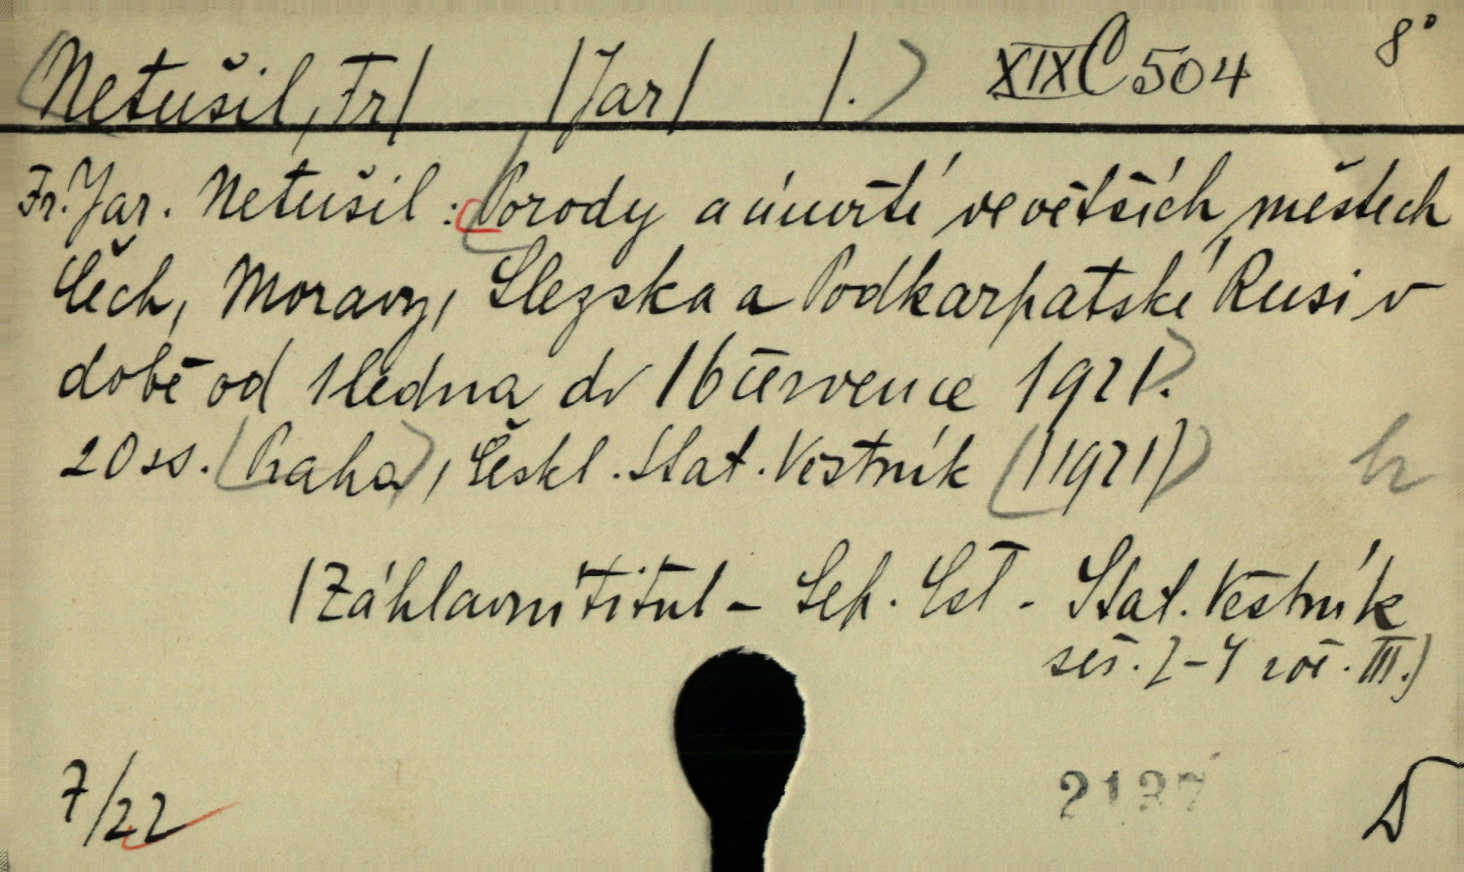 Netušil, Fr/ /Jar/ /.) XIX C 504 8°
Fr. Jar. Netušil: Porody a úmrtí ve větších městech
Čech, Moravy, Slezska a Podkarpatské Rusi v
době od 1 ledna do 16 července 1921.
20 ss. (Praha), Českl. Stat. Vestník (/1921/)
/Záhlavní titul - Sep. Čsl - Stat. Věstník
seš. 2-4 roč. III.)
7/22 2137